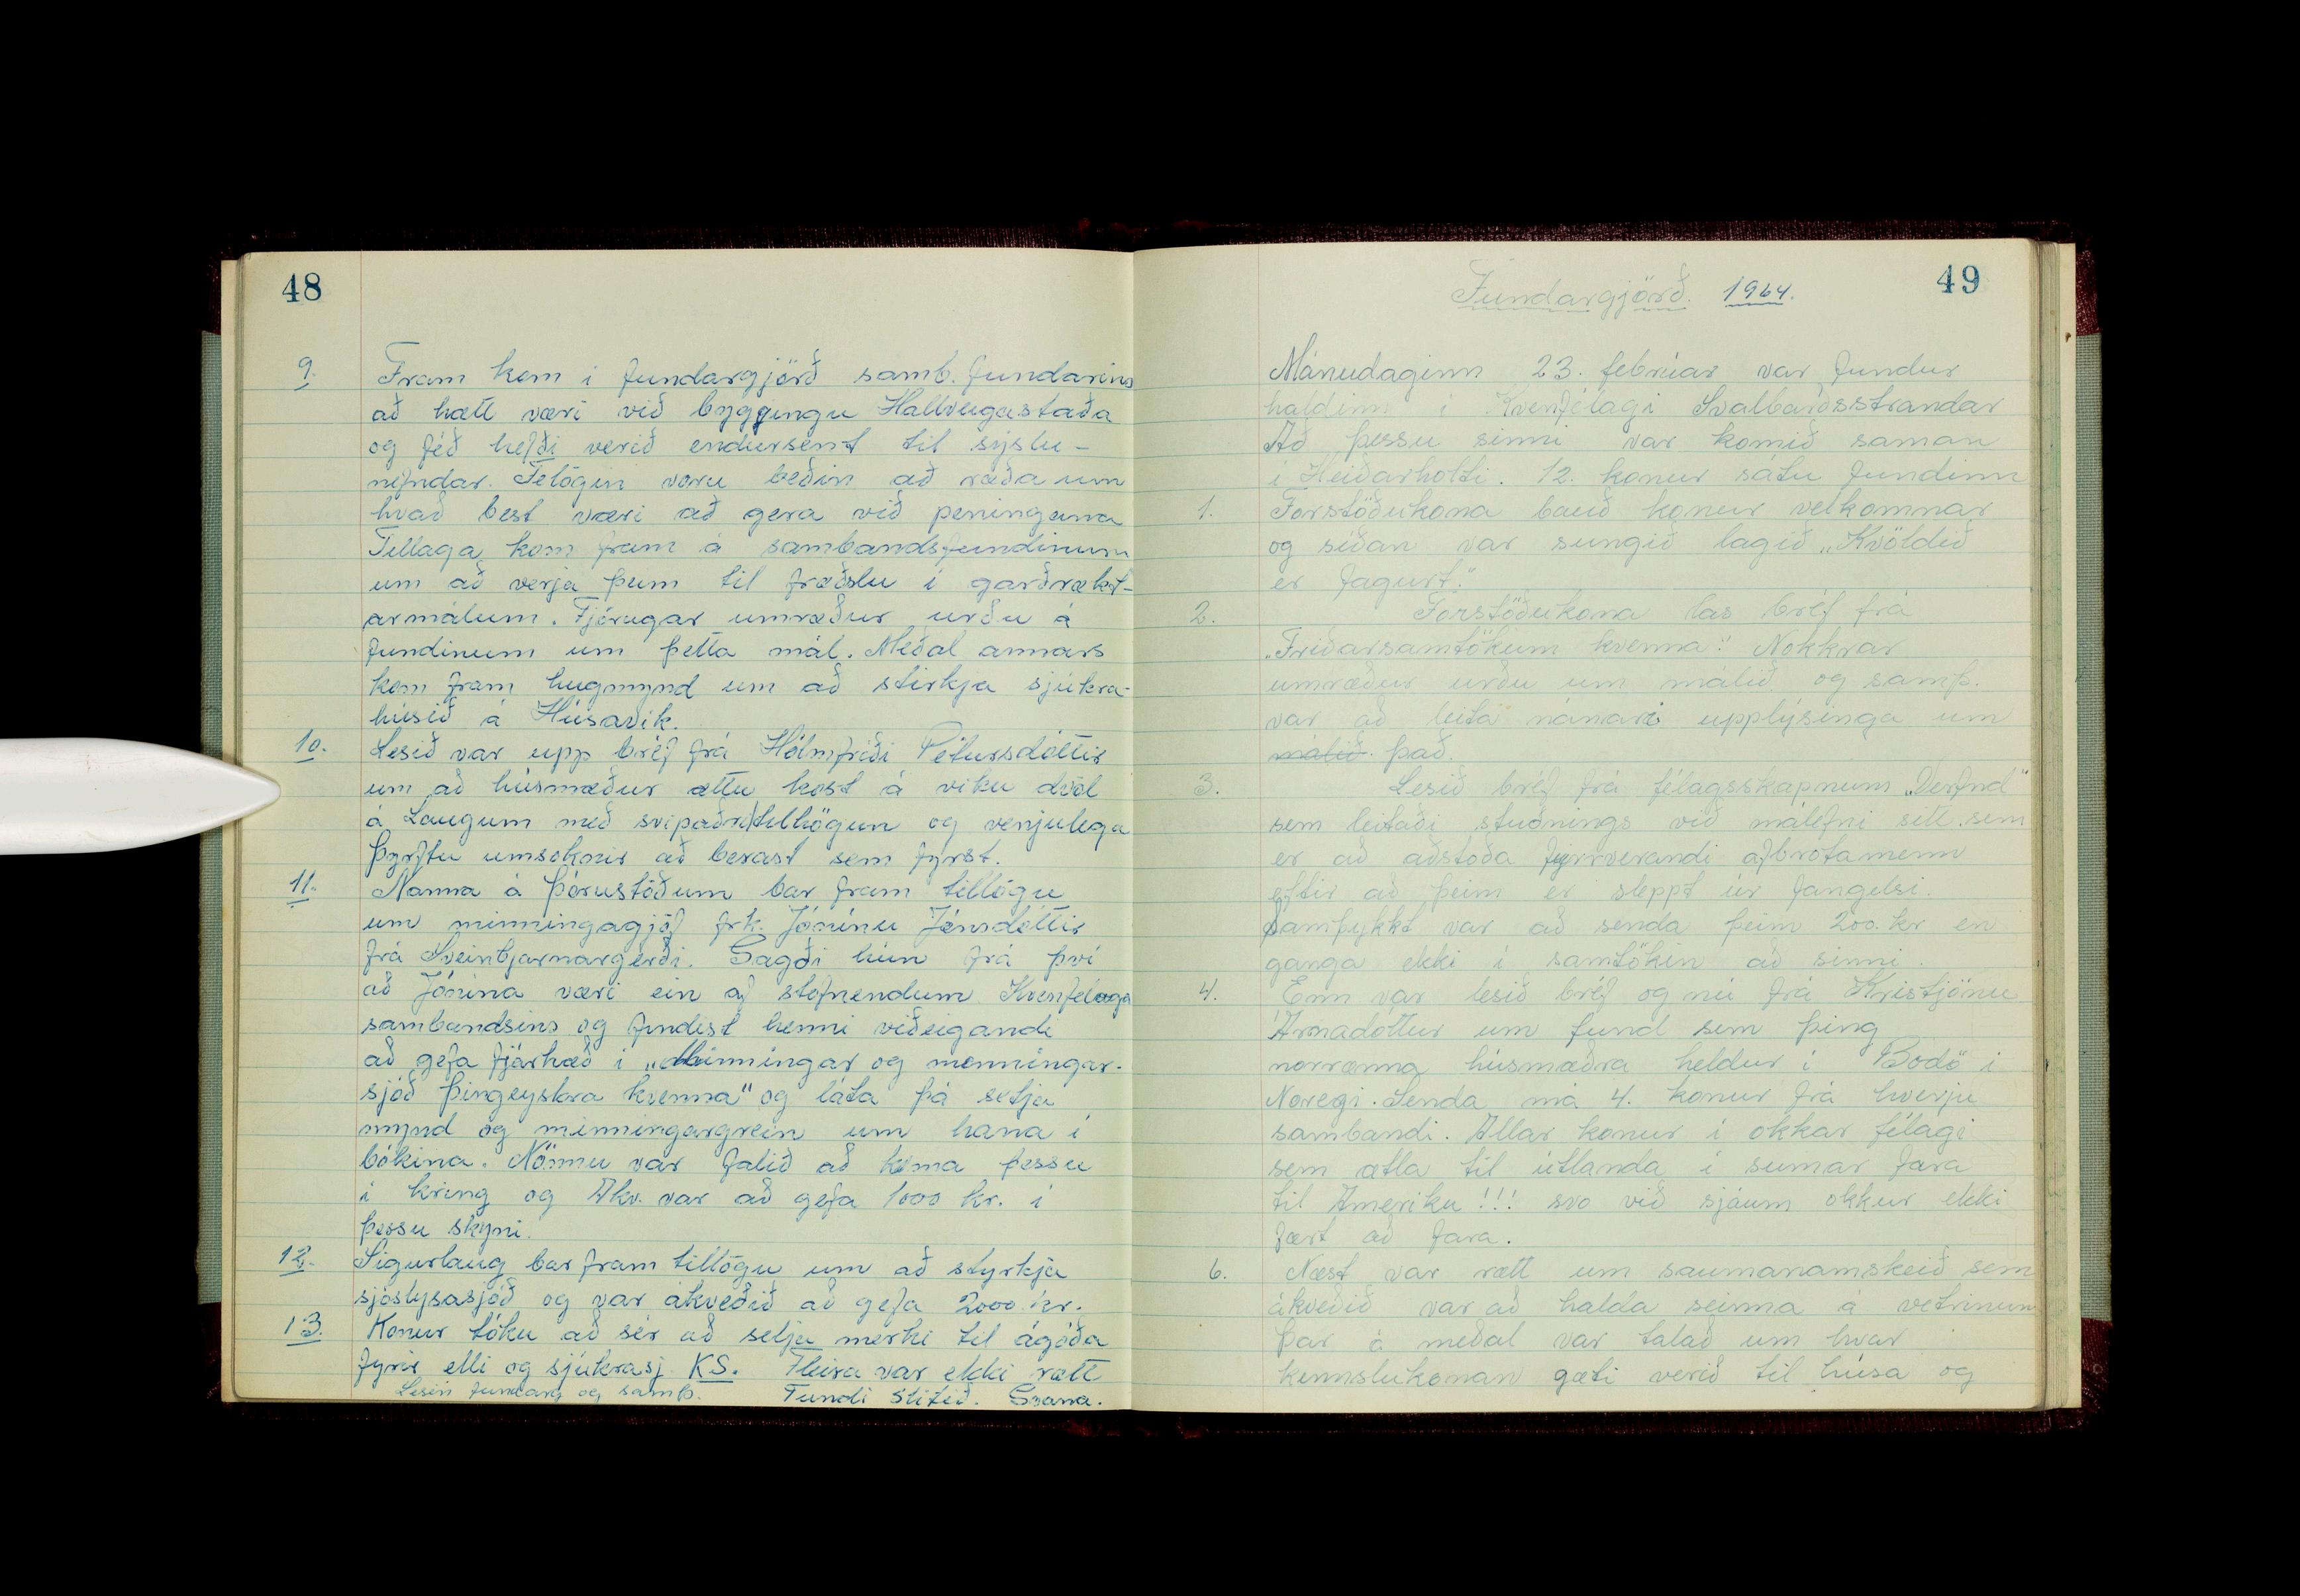 48
9. Fram kom i fundargjörð samb. fundarins
að hætt væri við byggingu Hallveigastaða
og féð hefði verið endursent til sýslu-
nefndar. Félögin voru beðin að ræða um
hvað best væri að gera við peningana
Tillaga kom fram á sambandsfundinum
um að verja þeim til fræðslu í garðrækt-
armálum. Fjörugar umræður urðu á
fundinum um þetta mál. Meðal annars
kom fram hugmynd um að stirkja sjúkra-
húsið á Húsavík.
10. Lesið var upp bréf frá Hólmfríði Pétursdóttir
um að húsmæður ættu kost á viku dvöl
á Laugum með svipaðri tilhögun og venjulega
Þyrftu umsóknir að berast sem fyrst.
11. Nanna á Þórustöðum bar fram tillögu
um minningagjöf frk. Jónínu Jónsdóttir
frá Sveinbjarnargerði. Sagði hún frá því
að Jónína væri ein af stofnendum Kvenfélaga
sambandsins og fyndist henni viðeigandi
að gefa fjárhæð í „Minningar og menningar-
sjóð þingeyskra kvenna" og láta þá setja
mynd og minningargrein um hana í
bókina. Nönnu var falið að koma þessu
í kring og Ákv. var að gefa 1000 kr. í
þessu skyni.
12. Sigurlaug bar fram tillögu um að styrkja
sjóslysasjóð og var ákveðið að gefa 2000 kr.
13. Konur tóku að sér að selja merki til ágóða
fyrir elli og sjúkrasj. KS. Fleira var ekki rætt
Lesin fundarg og samþ. Fundi slitið. Svana.
49
Fundargjörð. 1964.
Mánudaginn 23. febrúar var fundur
haldinn í Kvenfélagi Svalbarðsstrandar
Að þessu sinni var komið saman
í Heiðarholti. 12. konur sátu fundinn
1. Forstöðukona bauð konur velkomnar
og síðan var sungið lagið „Kvöldið
er fagurt."
2. Forstöðukona las bréf frá
„Friðarsamtökum kvenna" Nokkrar
umræður urðu um málið og samþ.
var að leita nánari upplýsinga um
málið. það.
3. Lesið bréf frá félagsskapnum „Vernd"
sem leitaði stuðnings við málefni sitt sem
er að aðstoða fyrrverandi afbrotamenn
eftir að þeim er sleppt úr fangelsi.
Samþykkt var að senda þeim 200. kr en
ganga ekki í samtökin að sinni.
4. Enn var lesið bréf og nú frá Kristjönu
Árnadóttur um fund sem þing
norrænna húsmæðra heldur í Bodö í
Noregi. Senda má 4. konur frá hverju
sambandi. Allar konur í okkar félagi
sem ætla til útlanda í sumar fara
til Ameríku!!! svo við sjáum okkur ekki
fært að fara.
6. Næst var rætt um saumanámskeið sem
ákveðið var að halda seinna á vetrinum
Þar á meðal var talað um hvar
kennslukonan gæti verið til húsa og